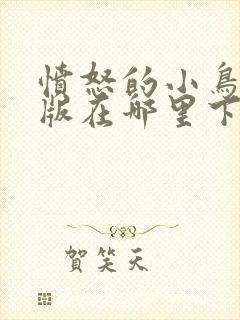 愤怒的小鳥
版在哪里下
賀笑天